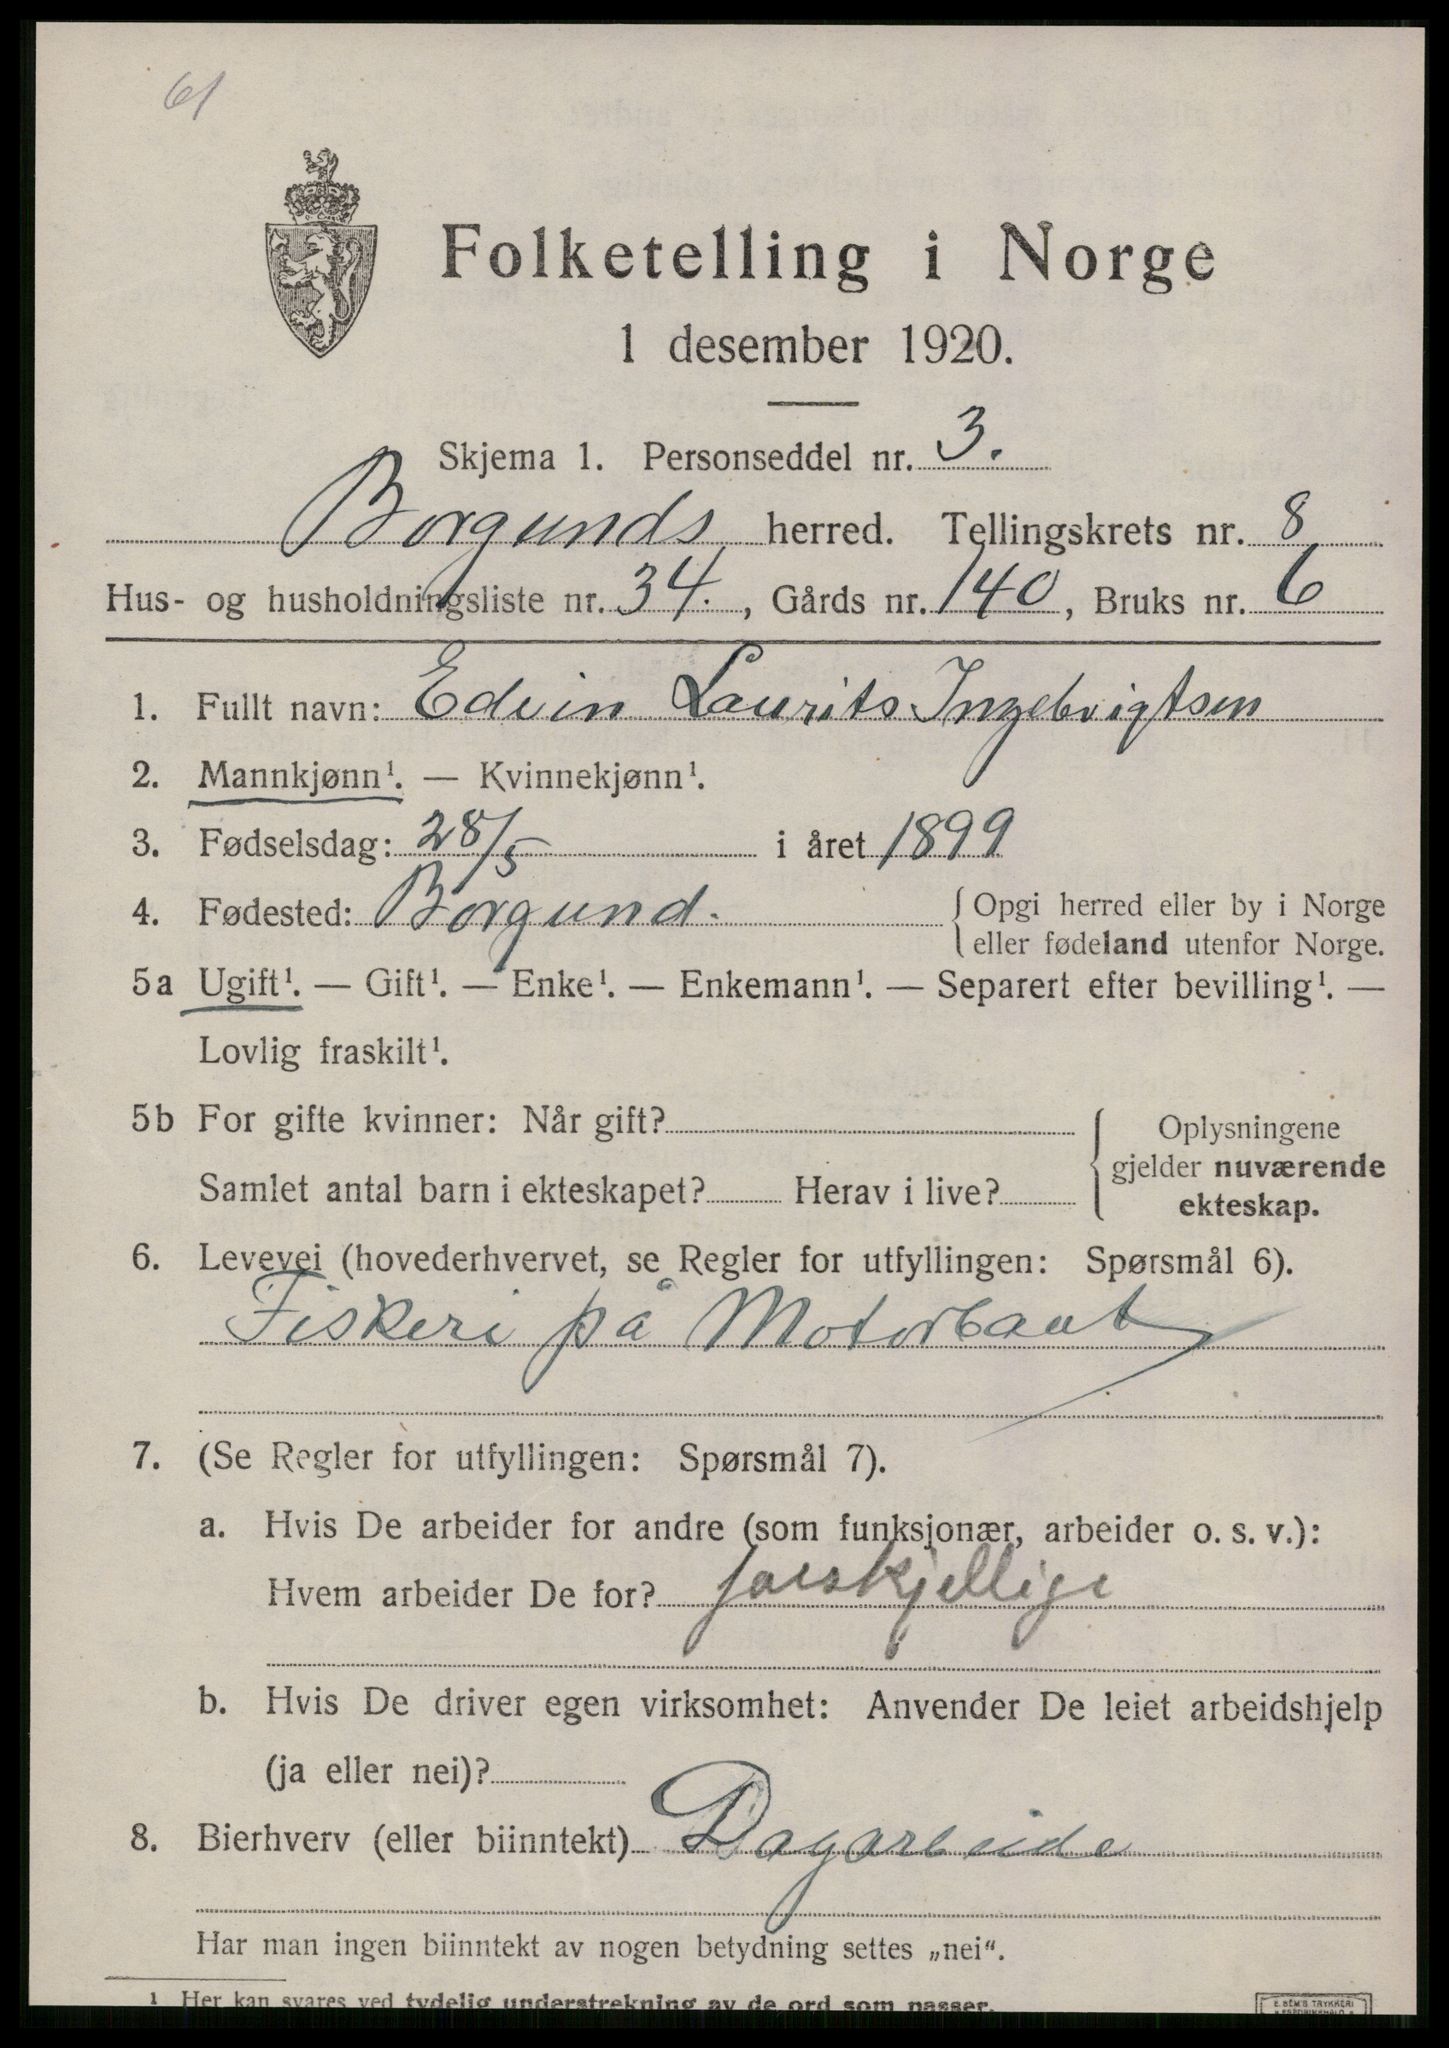 61
Folketelling i Norge
1 desember 1920.
Skjema 1. Personseddel nr. 3.
Borgunds herred. Tellingskrets nr. 8
Hus- og husholdningsliste nr. 34., Gårds nr. 140, Bruks nr. 6
1. Fullt navn: Edvin Laurits Ingebrigtsen
2. Mannkjønn¹. — Kvinnekjønn¹.
3. Fødselsdag: 28/5 i året 1899
4. Fødested: Borgund. { Opgi herred eller by i Norge
eller fødeland utenfor Norge.
5a Ugift¹. — Gift¹. — Enke¹. — Enkemann¹. — Separert efter bevilling¹. —
Lovlig fraskilt¹.
5b For gifte kvinner: Når gift?
Samlet antal barn i ekteskapet? Herav i live?
Oplysningene
gjelder nuværende
ekteskap.
6. Levevei (hovederhvervet, se Regler for utfyllingen: Spørsmål 6).
Fiskeri på Motorbaat
7. (Se Regler for utfyllingen: Spørsmål 7).
a. Hvis De arbeider for andre (som funksjonær, arbeider o. s. v.):
Hvem arbeider De for? forskjellige
b. Hvis De driver egen virksomhet: Anvender De leiet arbeidshjelp
(ja eller nei)?
8. Bierhverv (eller biinntekt) Dagarbeide
Har man ingen biinntekt av nogen betydning settes „nei“.
¹ Her kan svares ved tydelig understrekning av de ord som passer.
E. SEM'S TRYKKERI
FREDRIKSHALD